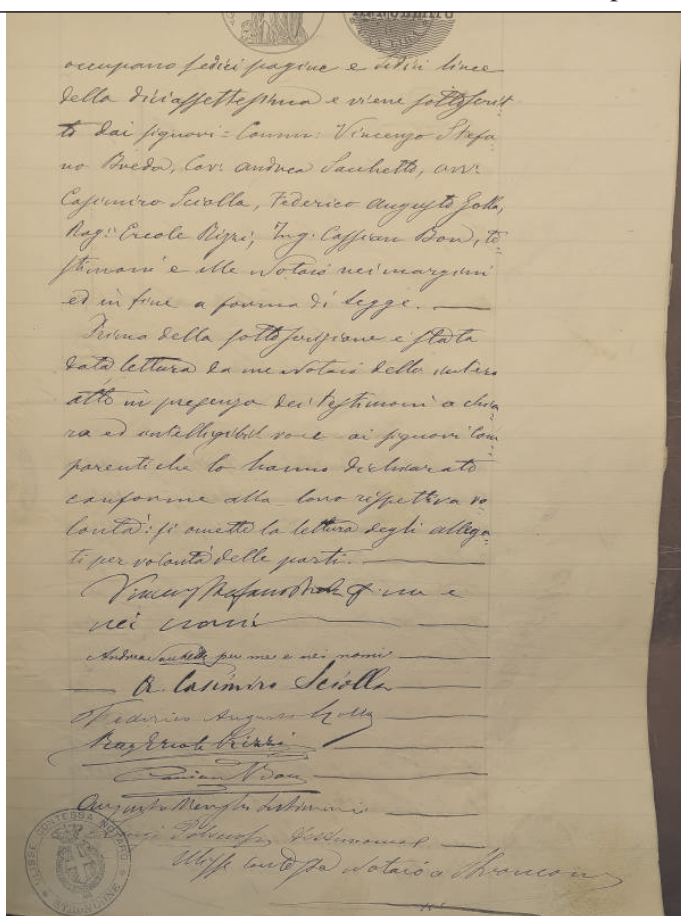 occupano sedici pagine e sedici linee
della diciassettesima e viene sottoscrit
to dai signori = Comm: Vincenzo Stefa
no Breda, Cav: Andrea Sacchetto, avv:
Casimiro Sciolla, Federico Augusto Golla,
Rag: Ercole Rizzi, Ing: Cassian Bon, te=
stimoni e me Notaio nei margini
ed in fine a forma di legge.
Prima della sottoscrizione è stata
data lettura da me Notaio dello intero
atto in presenza dei testimoni a chia
ra ed intelligibil voce ai signori Com
parenti che lo hanno dichiarato
conforme alla loro rispettiva vo=
lontà: si omette la lettura degli allega=
ti per volontà delle parti.
Vincenzo Stefano Breda per me e
nei nomi
Andrea Sacchetto per me e nei nomi
A. Casimiro Sciolla
Federico Augusto Golla
Rag Ercole Rizzi
Cassian Bon
Augusto testimonio
testimone
Ulisse Contessa Notaio a Stroncone
ULISSE CONTESSA NOTARO
STRONCONE